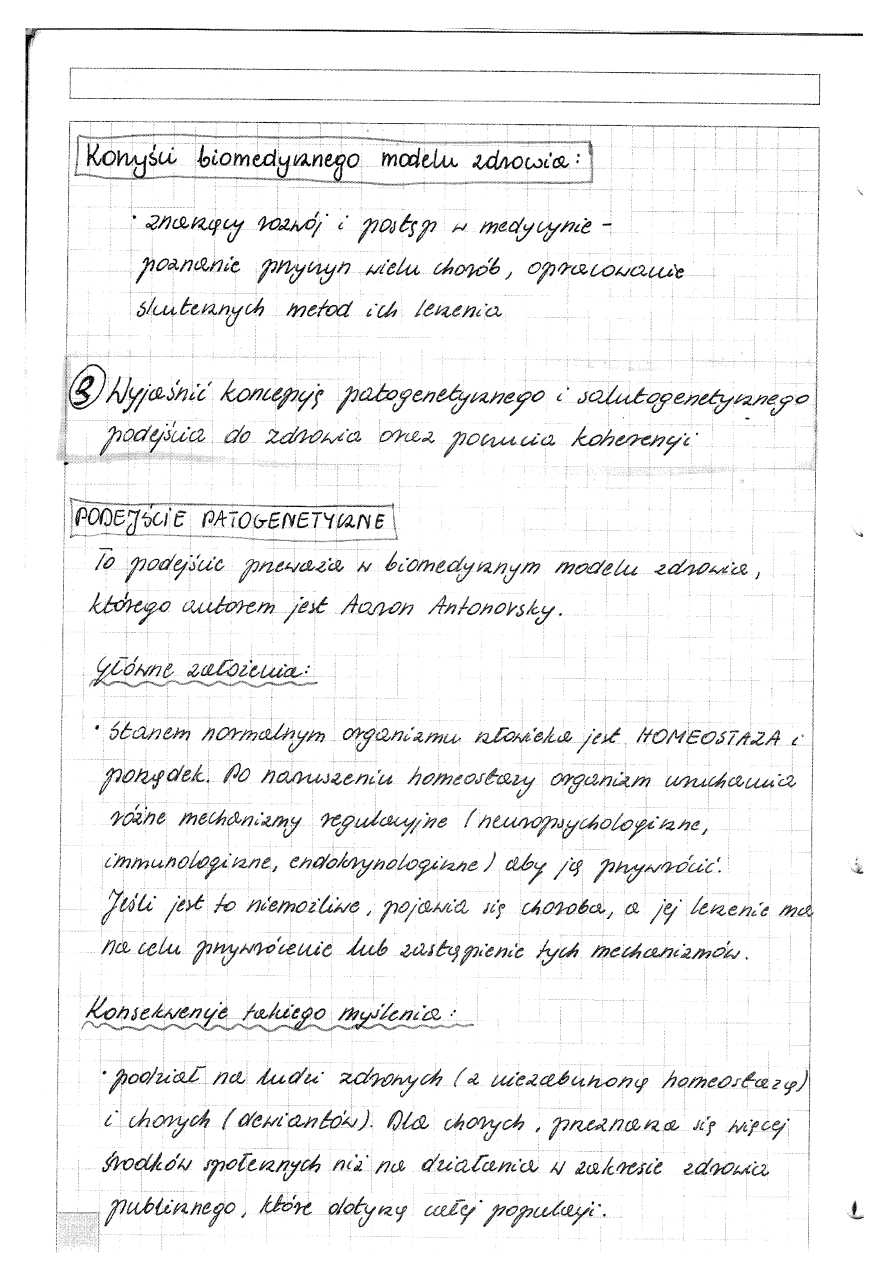 Korzyści biomedycznego modelu zdrowia:
• znaczący rozwój i postęp w medycynie –
poznanie przyczyn wielu chorób, opracowanie
skutecznych metod ich leczenia
3 Wyjaśnić koncepcję patogenetycznego i salutogenetycznego
podejścia do zdrowia oraz poczucia koherencji
PODEJŚCIE PATOGENETYCZNE
To podejście przeważa w biomedycznym modelu zdrowia,
którego autorem jest Aaron Antonovsky.
Główne założenia:
• Stanem normalnym organizmu człowieka jest HOMEOSTAZA i
porządek. Po naruszeniu homeostazy organizm uruchamia
różne mechanizmy regulacyjne (neuropsychologiczne,
immunologiczne, endokrynologiczne) aby ją przywrócić.
Jeśli jest to niemożliwe, pojawia się choroba, a jej leczenie ma
na celu przywrócenie lub zastąpienie tych mechanizmów.
Konsekwencje takiego myślenia:
• podział na ludzi zdrowych (z niezaburzoną homeostazą)
i chorych (dewiantów). Dla chorych, przeznacza się więcej
środków społecznych niż na działania w zakresie zdrowia
publicznego, które dotyczą całej populacji.